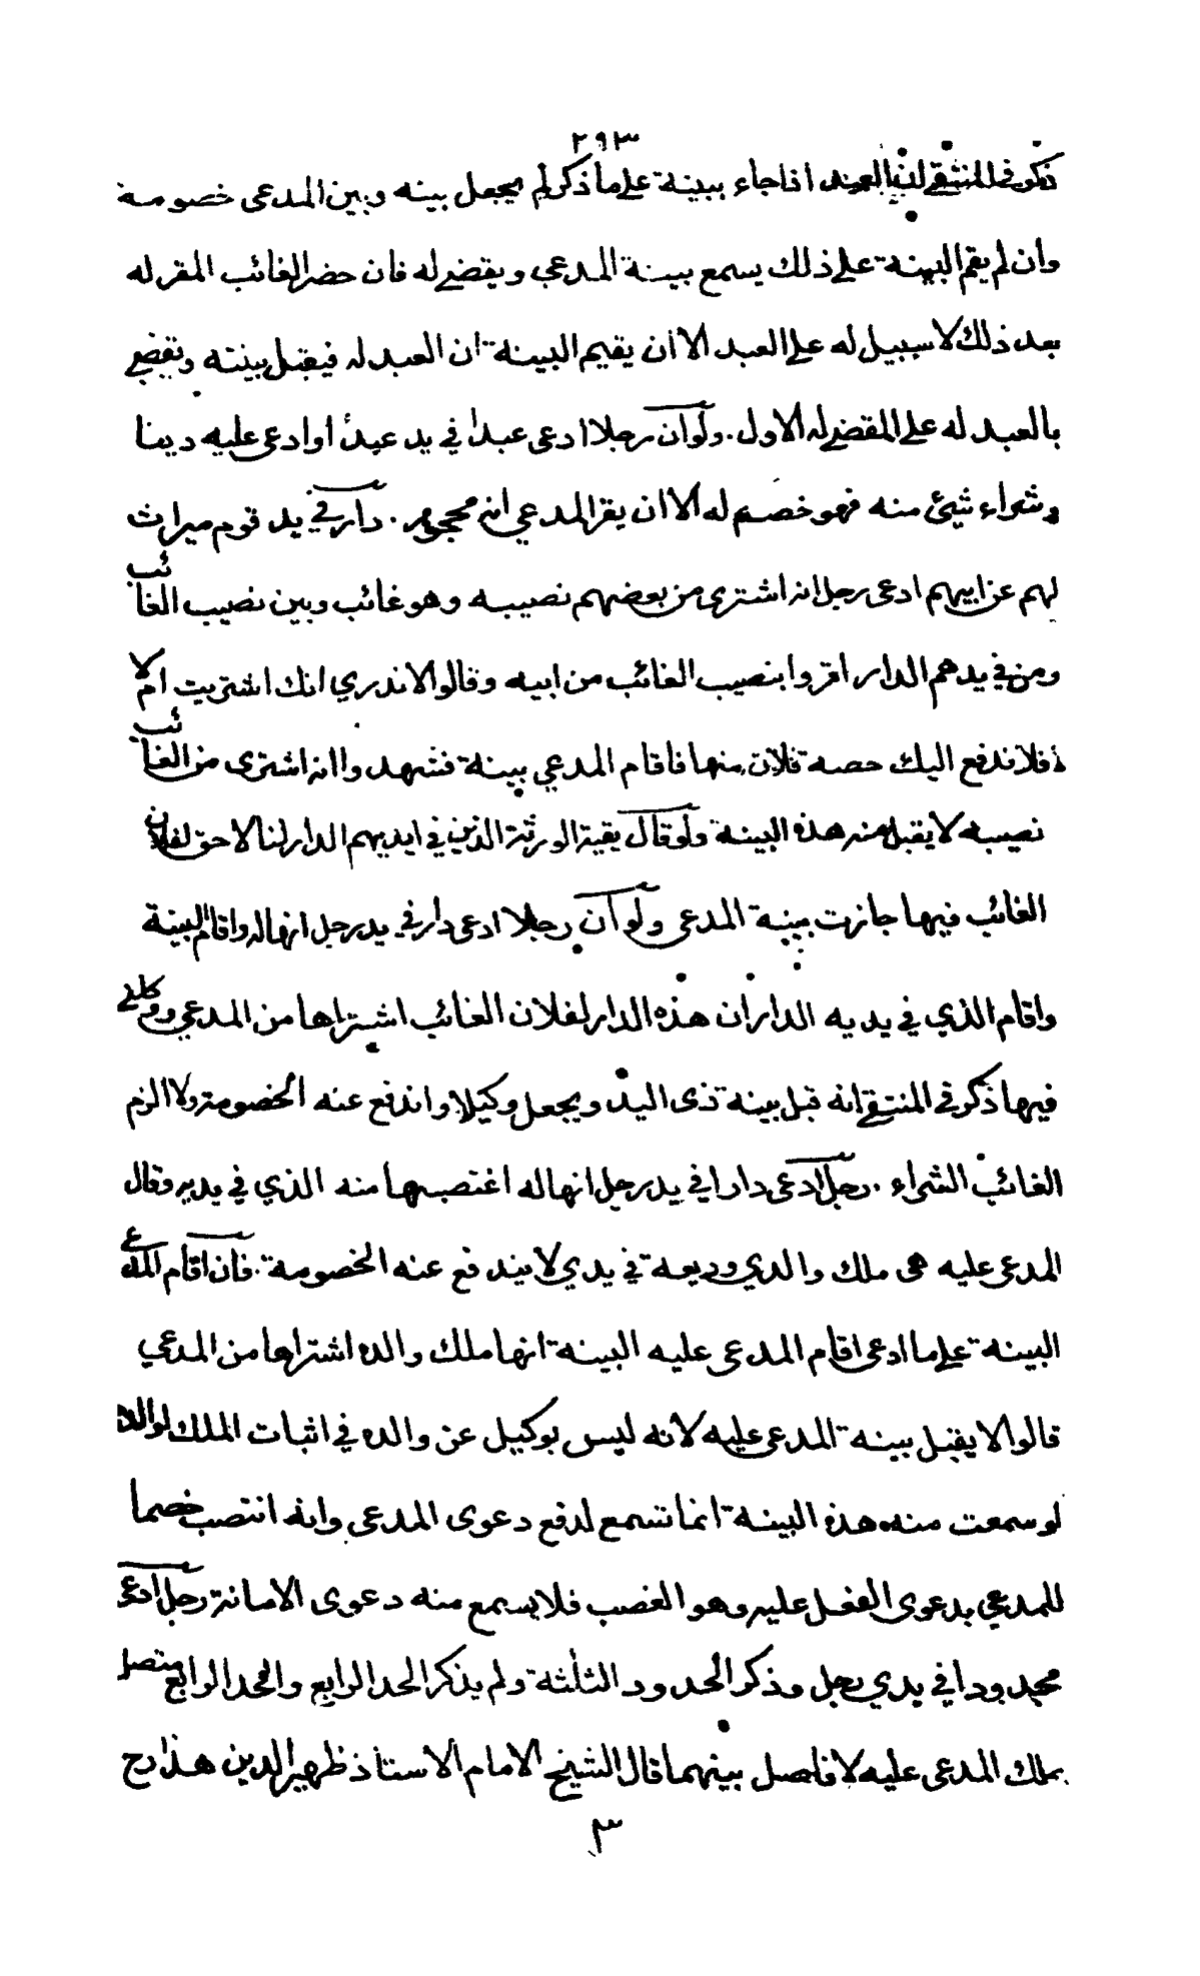 ٢٩٣
ذكر في المنتقى ان العبد اذا جاء ببينة على ما ذكر لم يجعل بينه وبين المدعى خصومة
وان لم يقم البينة على ذلك يسمع بينة المدعي ويقضى له فان حضر الغائب المقر له
بعد ذلك لا سبيل له على العبد الا ان يقيم البينة ان العبد له فيقبل بينته ويقضى
بالعبد له على المقضى له الاول . ولو ان رجلا ادعى عبدا في يد عبد أو ادعى عليه دينا
وشراء شيئ منه فهو خصم له الا ان يقر المدعي انه محجور . دار في يد قوم ميراث
لهم عن ابيهم ادعى رجل انه اشترى من بعضهم نصيبه وهو غائب وبين نصيب الغائب
ومن في يدهم الدار اقروا بنصيب الغائب من ابيه وقالوا لا ندري انك اشتريت ام لا
فلا ندفع اليك حصة فلان منها فاقام المدعي بينة فشهدوا انه اشترى من الغائب
نصيبه لا يقبل منه هذه البينة ولو قال بقية الورثة الذين في ايديهم الدار لنا لا حق لفلان
الغائب فيها جازت بينة المدعى ولو ان رجلا ادعى دار في يد رجل انها له واقام البينة
واقام الذي في يديه الدار ان هذه الدار لفلان الغائب اشتراها من المدعي ووكلني
فيها ذكر في المنتقى انه قبل بينة ذى اليد ويجعل وكيلا واندفع عنه الخصومة ولا الزم
الغائب الشراء . رجل ادعى دارا في يد رجل انها له اغتصبها منه الذي في يديه وقال
المدعى عليه هى ملك والدي وديعة في يدي لا يندفع عنه الخصومة . فان اقام المدعي
البينة على ما ادعى اقام المدعى عليه البينة انها ملك والده اشتراها من المدعي
قالوا لا يقبل بينة المدعى عليه لانه ليس بوكيل عن والده في اثبات الملك لوالده
لو سمعت منه هذه البينة انما تسمع لدفع دعوى المدعى وانه انتصب خصما
للمدعي بدعوى الفعل عليه وهو الغصب فلا يسمع منه دعوى الامانة رجل ادعى
محدودا في يدي رجل وذكر الحدود الثلثة ولم يذكر الحد الرابع والحد الرابع متصل
بملك المدعى عليه لا فاصل بينهما قال الشيخ الامام الاستاذ ظهير الدين هذا رح